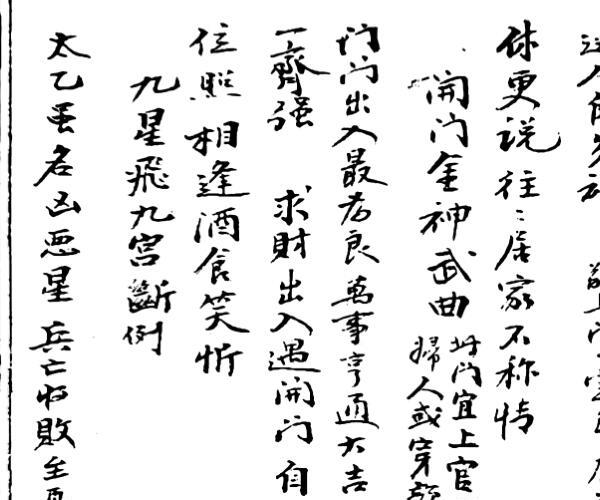 休更説往〻居家不称情
開门金神武曲 此门宜上官
婦人或穿
门门出入最为良 萬事亨通大吉
一齊强 求財出入遇開门自
位照相逢酒食笑忻
九星飛九宫斷例
太乙星名凶惡星 兵亡收敗至